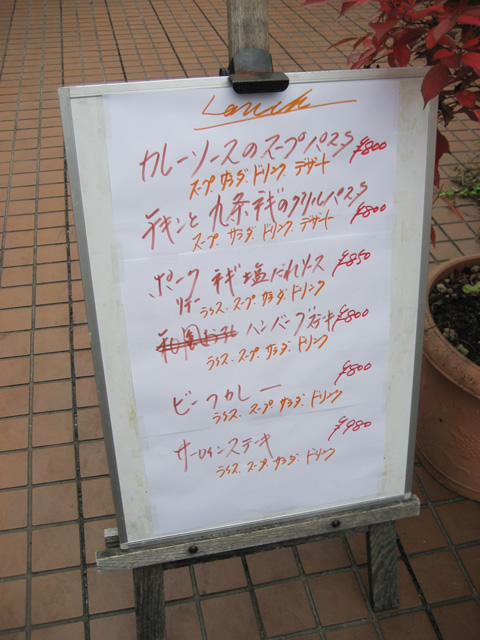 Lunch
カレーソースのスープパスタ ¥800
スープ サラダ ドリンク デザート
チキンと九条ネギのクリームパスタ ¥800
スープ サラダ ドリンク デザート
ポーク ネギ塩だれソース ¥850
ライス、スープ、サラダ、ドリンク
ハンバーグステーキ ¥800
ライス、スープ、サラダ、ドリンク
ビーフカレー ¥800
ライス、スープ、サラダ、ドリンク
サーロインステーキ ¥980
ライス、スープ、サラダ、ドリンク